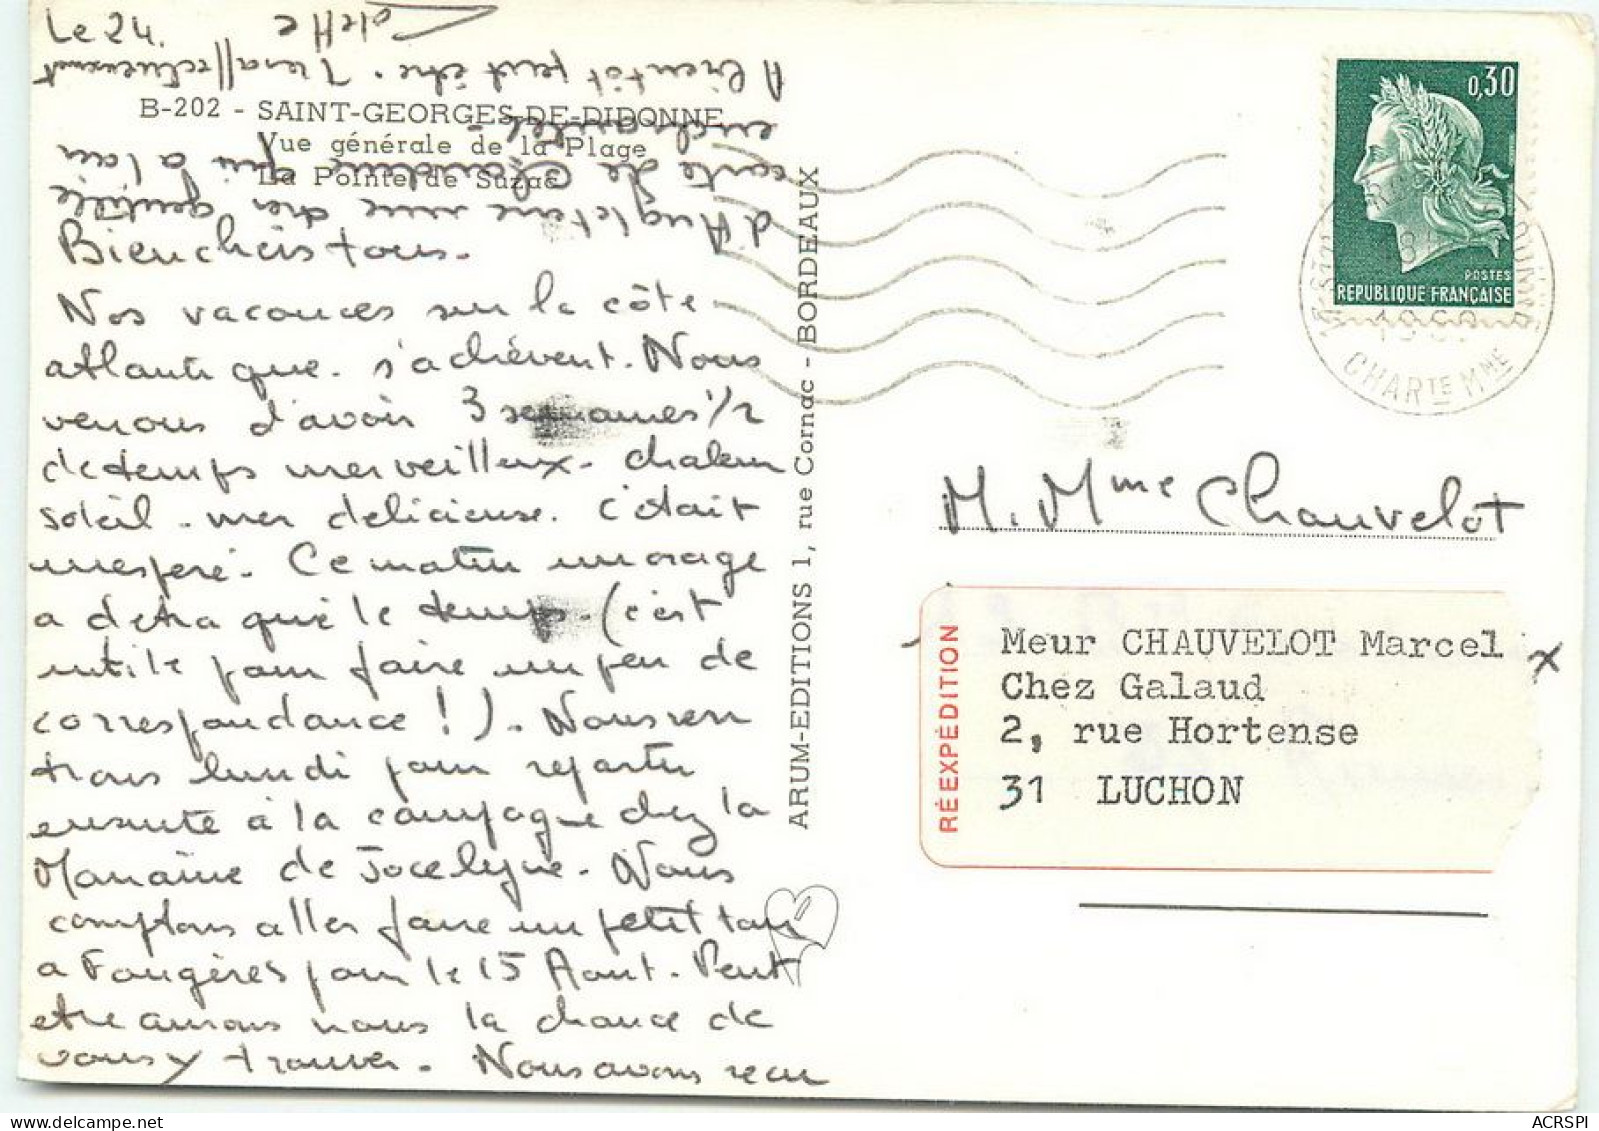 Le 24.
B-202 - SAINT-GEORGES-DE-DIDONNE
Vue générale de la Plage
La Pointe de Suzac
Bien chers tous.
Nos vacances sur la côte
atlantique s'achèvent. Nous
venons d'avoir 3 semaines 1/2
de temps merveilleux - chaleur
soleil - mer delicieuse. C'était
inespéré. Ce matin un orage
a detraqué le temps. (c'est
utile pour faire un peu de
correspondance !). Nous ren
trons lundi pour repartir
ensuite à la campagne chez la
Marraine de Jocelyne. Nous
comptons aller faire un petit tour
a Fougères pour le 15 Aout. Peut
etre aurons nous la chance de
vous y trouver. Nous avons reçu
d'Angleterre une très gentille
carte de Claudine qui a l'air
enchantée -
A bientôt peut être. Tres affectueusement
Colette
ARUM-EDITIONS 1, rue Cornac - BORDEAUX
0,30
POSTES
REPUBLIQUE FRANÇAISE
CHARTE MME
M. Mme Chauvelot
RÉEXPÉDITION
Meur CHAUVELOT Marcel
Chez Galaud
2, rue Hortense
31 LUCHON
ACRSPI